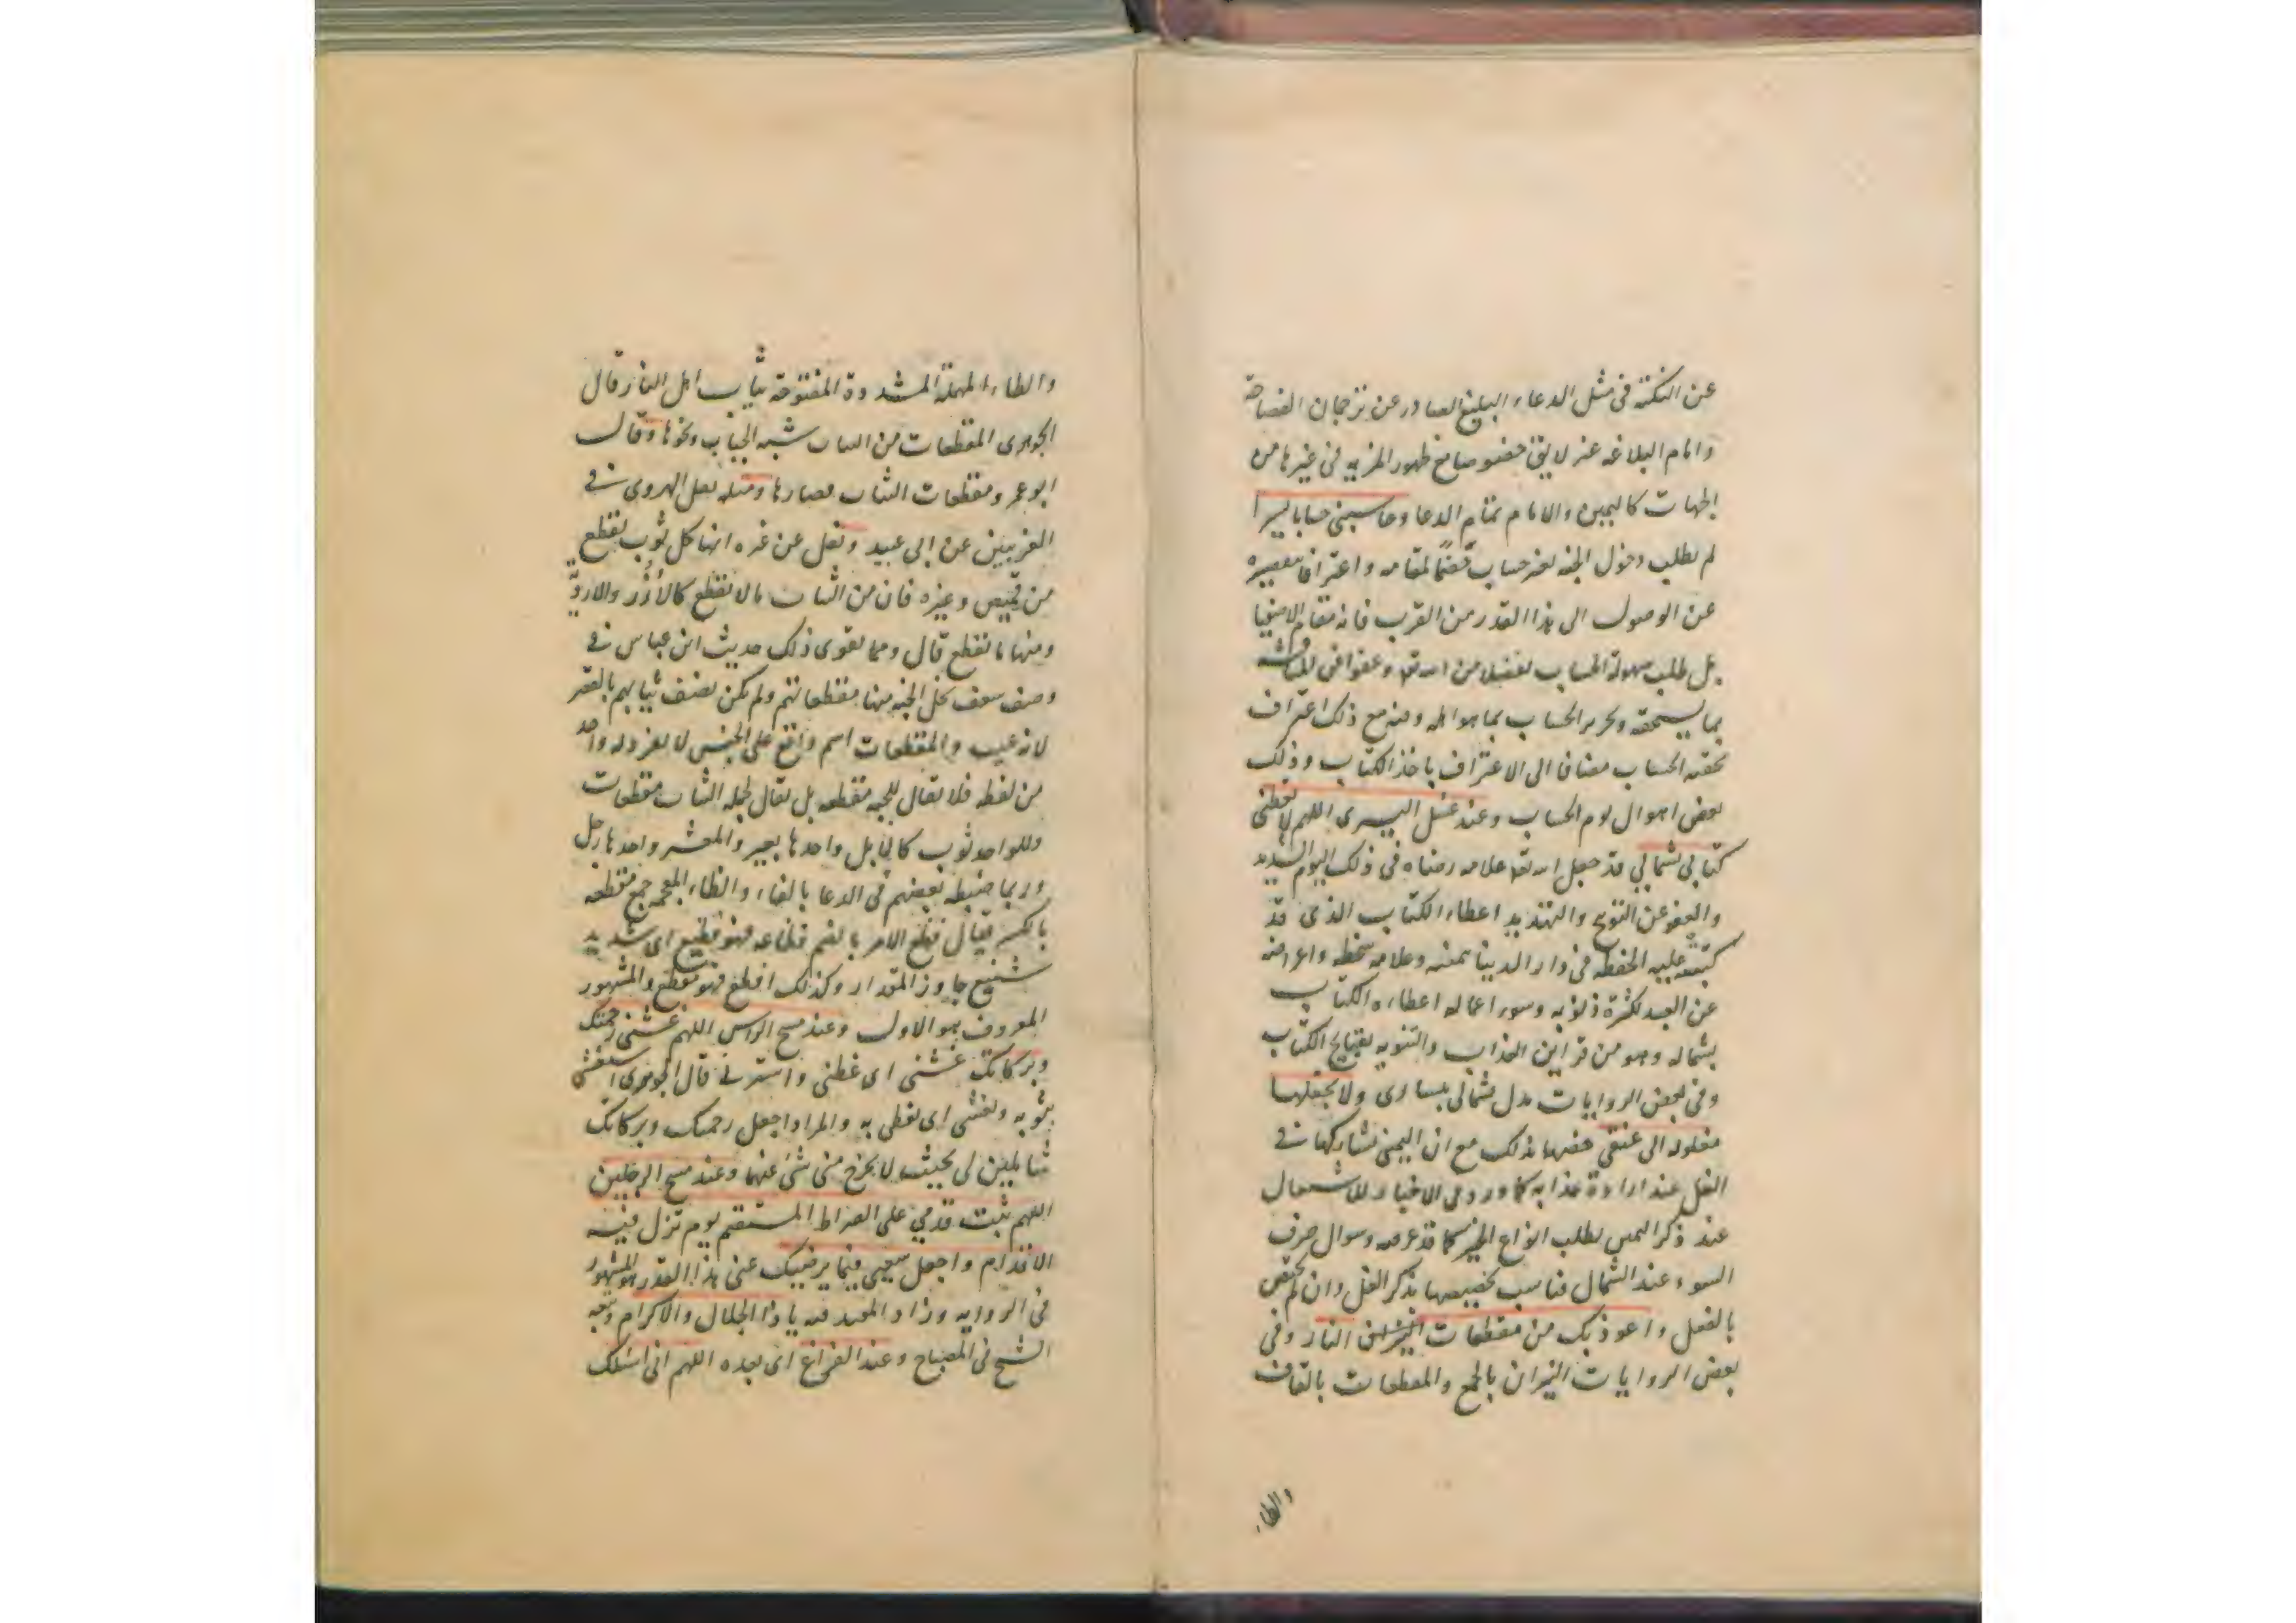 عن النكتة فى مثل الدعاء البليغ الصادر عن ترجمان الفصاحة
وامام البلاغه غير لايق خصوصا مع ظهور المزيه فى غيرها من
الجهات كاليمين والامام تمام الدعا وحاسبنى حسابا يسيرا
لم يطلب دخول الجنه بغير حساب هضما لمقامه واعترافا بتقصيره
عن الوصول الى هذا القدر من القرب فانه مقام الاصفيا
بل طلب سهولة الحساب تفضلا من الله تع وعفوا فى المناقشه
بما يستحقه وتحرير الحساب بما هو اهله وفيه مع ذلك اعتراف
بحقيه الحساب مضافا الى الاعتراف باخذ الكتاب وذلك
بعض احوال يوم الحساب وعند غسل اليسرى اللهم لا تعطنى
كتابى بشمالى قد جعل الله تع علامه رضاه فى ذلك اليوم الشديد
والعفو عن التوبيخ والتهديد اعطاء الكتاب الذى قد
كتبته عليه الحفظه فى دار الدنيا بيمينه وعلامه سخطه واعراضه
عن العبد لكثرة ذنوبه وسوء اعماله اعطاءه الكتاب
بشماله وهو من قراين العذاب والتنويه بقبايح الكتاب
وفى بعض الروايات بدل بشمالى بيسارى ولا تجعلها
مغلوله الى عنقى خصها بذلك مع ان اليمنى تشاركها فى
الغل عند ارادة عذابه كما ورد فى الاخبار للاشتغال
عند ذكر اليمين بطلب انواع الخير كما قد عرفت وسوال صرف
السوء عند الشمال فناسب تخصيصها بذكر الغل وان لم تختص
بالفعل واعوذ بك من مقطعات النيران النار وفى
بعض الروايات النيران بالجمع والمقطعات بالقاف
والطاء
والطاء المهملة المشددة المفتوحة ثياب اهل النار قال
الجوهرى المقطعات من الثياب شبه الجباب ونحوها وقال
ابو عمرو مقطعات الثياب قصارها ومثله نقل الهروى فى
الغريبين عن ابى عبيد ونقل عن غيره انها كل ثوب يقطع
من قميص وغيره فان من الثياب ما لا يقطع كالازر والارديه
ومنها ما يقطع قال ومما يقوى ذلك حديث ابن عباس فى
وصف سعف نخل الجنه منها مقطعاتهم ولم يكن يصف ثيابهم بالقصر
لانه عيب والمقطعات اسم واقع على الجنس لا يفرد له واحد
من لفظه فلا يقال للجبه مقطعه بل يقال لجمله الثياب مقطعات
وللواحد ثوب كالابل واحدها بعير والمعشر واحدها رجل
وربما ضبطه بعضهم فى الدعا بالفاء والظاء المعجمه جمع مفظعه
بالكسر فيقال فظع الامر بالضم فظاعه فهو فظيع اى شديد
شنيع جاوز المقدار وكذلك افظع فهو مفظع والمشهور
المعروف هو الاول وعند مسح الراس اللهم غشنى رحمتك
وبركاتك غشنى اى غطنى واسترنى قال الجوهرى استغشى
بثوبه وتغشى اى تغطى به والمراد اجعل رحمتك وبركاتك
شاملين لى بحيث لا يخرج منى شئ عنهما وعند مسح الرجلين
اللهم ثبت قدمى على الصراط المستقيم يوم تزل فيه
الاقدام واجعل سعيى فيما يرضيك عنى هذا القدر هو المشهور
فى الروايه وزاد المفيد فيه يا ذا الجلال والاكرام وتبعه
الشيخ فى المصباح وعند الفراغ اى بعده اللهم انى اسئلك